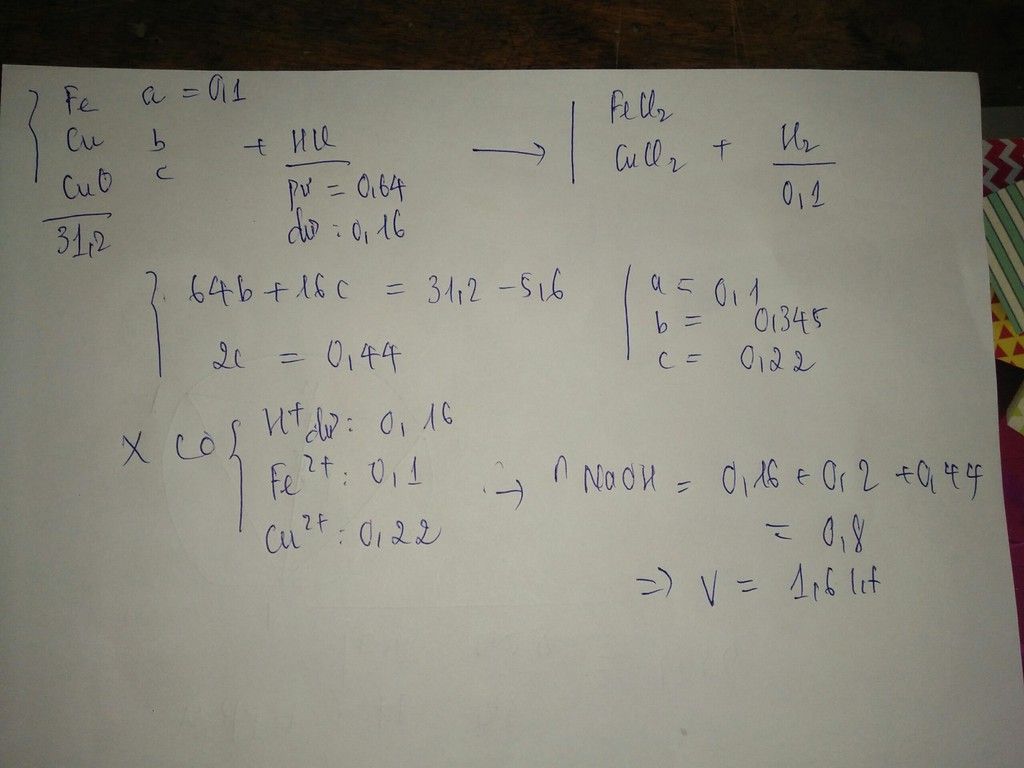 Fe a = 0,1
Cu b + HCl → FeCl2 CuCl2 + H2
CuO c pứ = 0,64 0,1
31,2 dư : 0,16
64b + 16c = 31,2 - 5,6 a = 0,1
b = 0,345
2c = 0,44 c = 0,22
X có H+ dư : 0,16
Fe2+ : 0,1 → n NaOH = 0,16 + 0,2 + 0,44
Cu2+ : 0,22 = 0,8
=> V = 1,6 lít